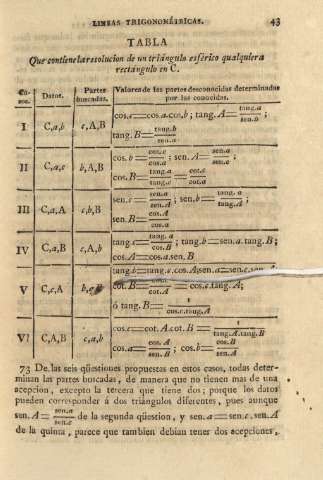 LINEAS TRIGONOMÉTRICAS. 43
TABLA
Que contiene la resolucion de un triángulo esférico qualquiera
rectángulo en C.
Casos. Datos. Partes buscadas. Valores de las partes desconocidas determinadas por las conocidas.
I C,a,b c,A,B cos.c=cos.a.cos.b; tang.A=tang.a/sen.b;
tang.B=tang.b/sen.a
II C,a,c b,A,B cos.b=cos.c/cos.a; sen.A=sen.a/sen.c;
cos.B=tang.a/tang.c=cot.c/cot.a
III C,a,A c,b,B sen.c=sen.a/sen.A; sen.b=tang.a/tang.A;
sen.B=cos.A/cos.a
IV C,a,B c,A,b tang.c=tang.a/cos.B; tang.b=sen.a.tang.B;
cos.A=cos.a.sen.B
V C,c,A tang.b=tang.c.cos.A;sen.a=sen.c.sen.A
cot.B=cos.c.tang.A;
ó tang.B=1/cos.c.tang.A
VI C,A,B c,a,b cos.c=cot.A.cot.B=1/tang.A.tang.B
cos.a=cos.A/sen.B; cos.b=cos.B/sen.A
73 De las seis qüestiones propuestas en estos casos, todas deter-
minan las partes buscadas, de manera que no tienen mas de una
acepcion, excepto la tercera que tiene dos; porque los datos
pueden corresponder á dos triángulos diferentes, pues aunque
sen.A=sen.a/sen.c de la segunda qüestion, y sen.a=sen.c.sen.A
de la quinta, parece que tambien debian tener dos acepciones,